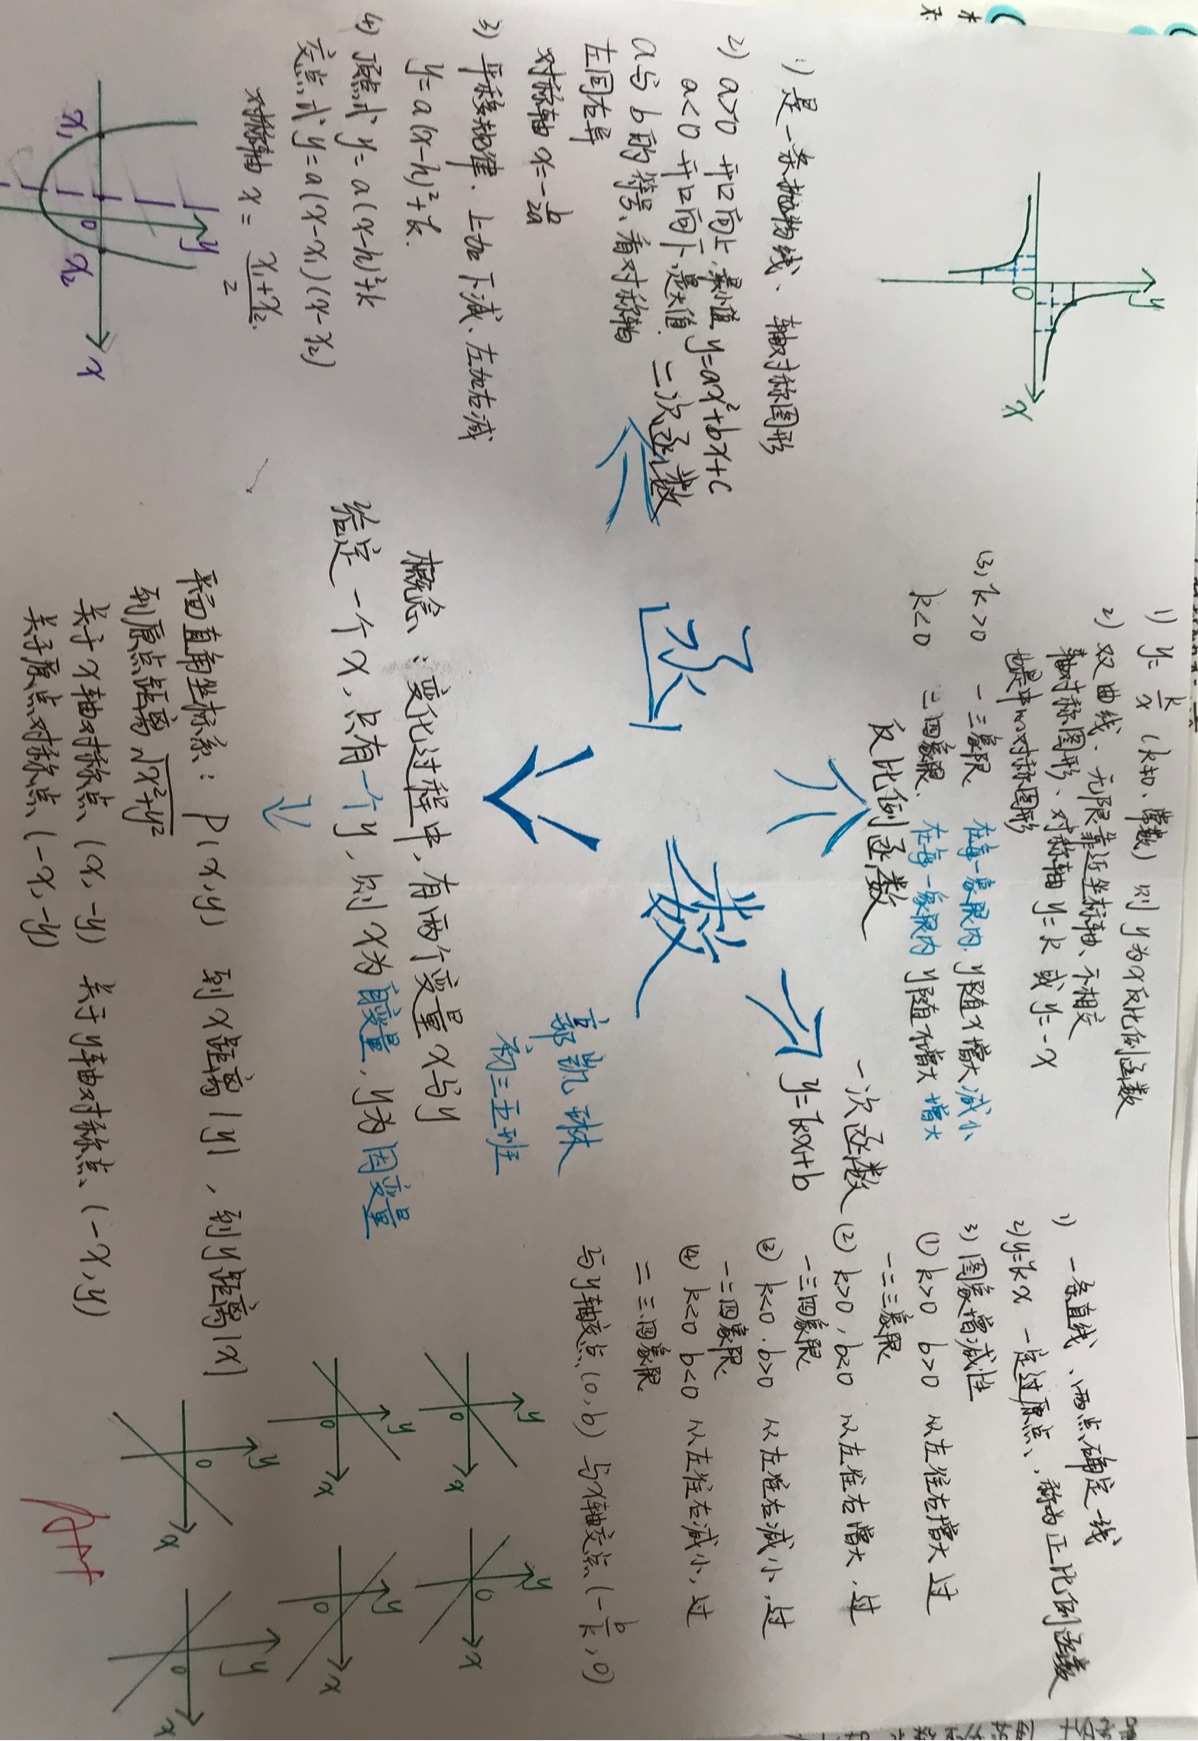 函数
郭凯琳
初三五班
概念：变化过程中，有两个变量x与y
给定一个x，只有一个y，则x为自变量，y为因变量
平面直角坐标系：P(x,y) 到x距离|y|，到y距离|x|
到原点距离√x²+y²
关于x轴对称点 (x,-y) 关于y轴对称点 (-x,y)
关于原点对称点 (-x,-y)
二次函数
y=ax²+bx+c
1) 是一条抛物线、轴对称图形
2) a>0 开口向上，最小值
a<0 开口向下，最大值
a与b的符号、看对称轴
左同右异
对称轴x=-b/2a
3) 平移规律、上加下减、左加右减
y=a(x-h)²+k.
4) 顶点式 y=a(x-h)²+k
交点式 y=a(x-x₁)(x-x₂)
对称轴 x=x₁+x₂/2
x₁ 0 x₂ x y
反比例函数
1) y=k/x (k≠0、常数) 则y为x反比例函数
2) 双曲线、无限靠近坐标轴、不相交
轴对称图形、对称轴 y=k 或 y=-x
也是中心对称图形
(3) k>0 一三象限 在每一象限内，y随x增大减小
k<0 二四象限、在每一象限内 y随x增大 增大
y 0 x
一次函数
y=kx+b
1) 一条直线、两点确定一线
2) y=kx 一定过原点、称为正比例函数
3) 图象增减性
① k>0 b>0 从左往右增大 过
一二三象限
(2) k>0，b<0 从左往右增大，过
一三四象限
③ k<0、b>0 从左往右减小，过
一二四象限
④ k<0 b<0 从左往右减小，过
二三四象限
与y轴交点(0,b) 与x轴交点(-b/k,0)
y 0 x
y 0 x
y 0 x
y 0 x
y 0 x
y 0 x